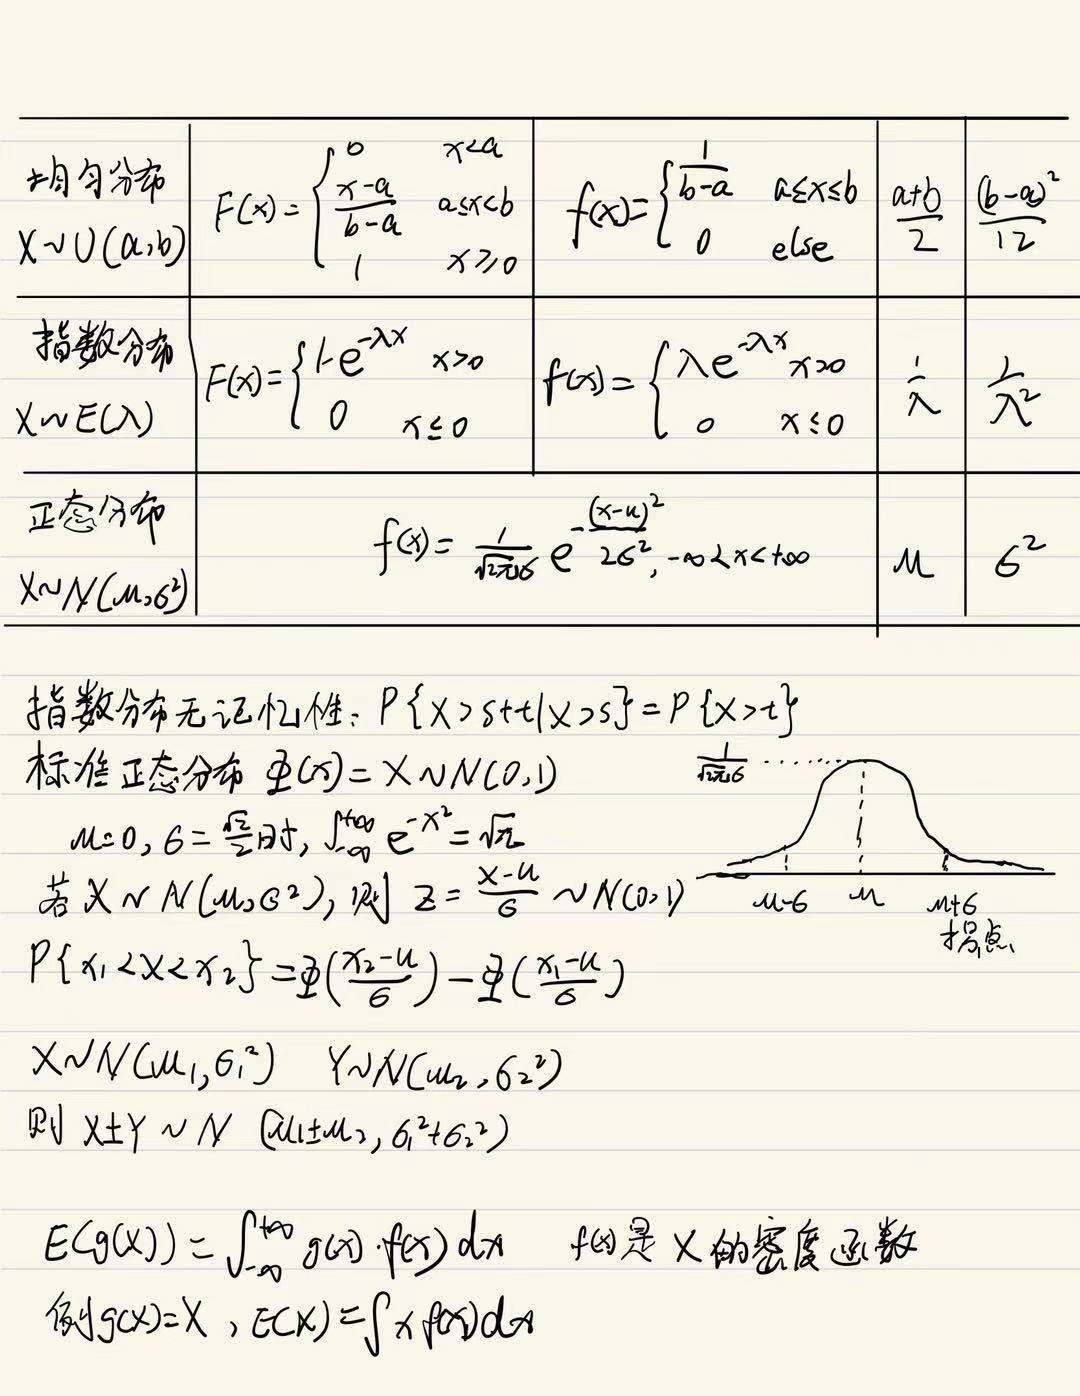 均匀分布 X~U(a,b) F(x)={0 x<a; (x-a)/(b-a) a≤x<b; 1 x≥0 f(x)={1/(b-a) a≤x≤b; 0 else (a+b)/2 (b-a)²/12
指数分布 X~E(λ) F(x)={1-e^{-λx} x>0; 0 x≤0 f(x)={λe^{-λx} x>0; 0 x≤0 1/λ 1/λ²
正态分布 X~N(μ,σ²) f(x)=1/(√(2π)σ) e^{-(x-μ)²/(2σ²)}, -∞<x<+∞ μ σ²
指数分布无记忆性: P{X>s+t|X>s}=P{X>t}
标准正态分布 Φ(x)=X~N(0,1)
μ=0, σ=√2/2时, ∫_{-∞}^{+∞} e^{-x²}=√π
若X~N(μ,σ²), 则 Z=(X-μ)/σ ~N(0,1)
1/(√(2π)σ)
μ-σ μ μ+σ
拐点
P{x₁<X<x₂}=Φ((x₂-μ)/σ)-Φ((x₁-μ)/σ)
X~N(μ₁,σ₁²) Y~N(μ₂,σ₂²)
则 X±Y~N (μ₁±μ₂, σ₁²+σ₂²)
E(g(X))=∫_{-∞}^{+∞} g(x)·f(x)dx f(x)是X的密度函数
例g(X)=X, E(X)=∫x f(x)dx